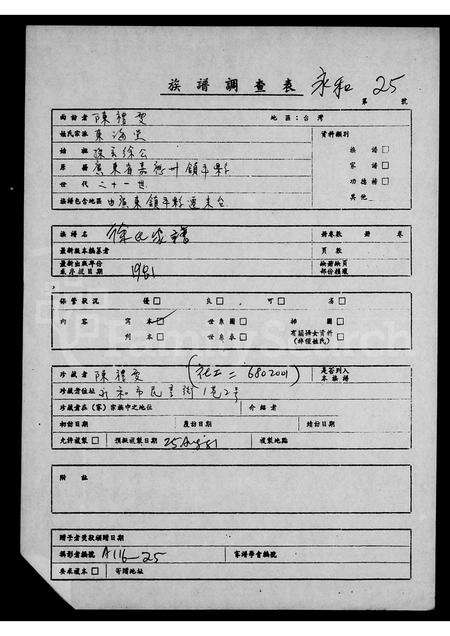 族譜調查表 永和 25
第 號
面訪者 陳禮 地區:台灣
姓氏家族 東海 資料類別
始祖 徐公 族譜□
原籍 廣東省嘉應州鎮平縣 家譜□
世代 二十一世 功德補□
族譜包含地區 由廣東鎮平縣遷來台 其他
族譜名 徐氏家譜 冊卷數 冊 卷
最新版本編纂者 頁數
最新出版年份或序從日期 1981 缺冊缺頁部份積壞
保管狀況 優□ 良□ 可□ 否□
內容 寫本□ 世系圖□ 排圖□
刊本□ 世系表□ 有關婦女資料(詳僅姓氏)□
珍藏者 陳禮 (社工:6802001) 是否列入本族譜
珍藏者住址 永和市民亨街1巷2号
珍藏者在(客)宗族中之地位 介紹者
初訪日期 度訪日期 結訪日期
允許複製□ 預擬複製日期 25 Aug 81 複製地點
附註
贈予者獎狀頒贈日期
攝影者編號 A116-25 家譜學會編號
要求複本□ 寄贈地址